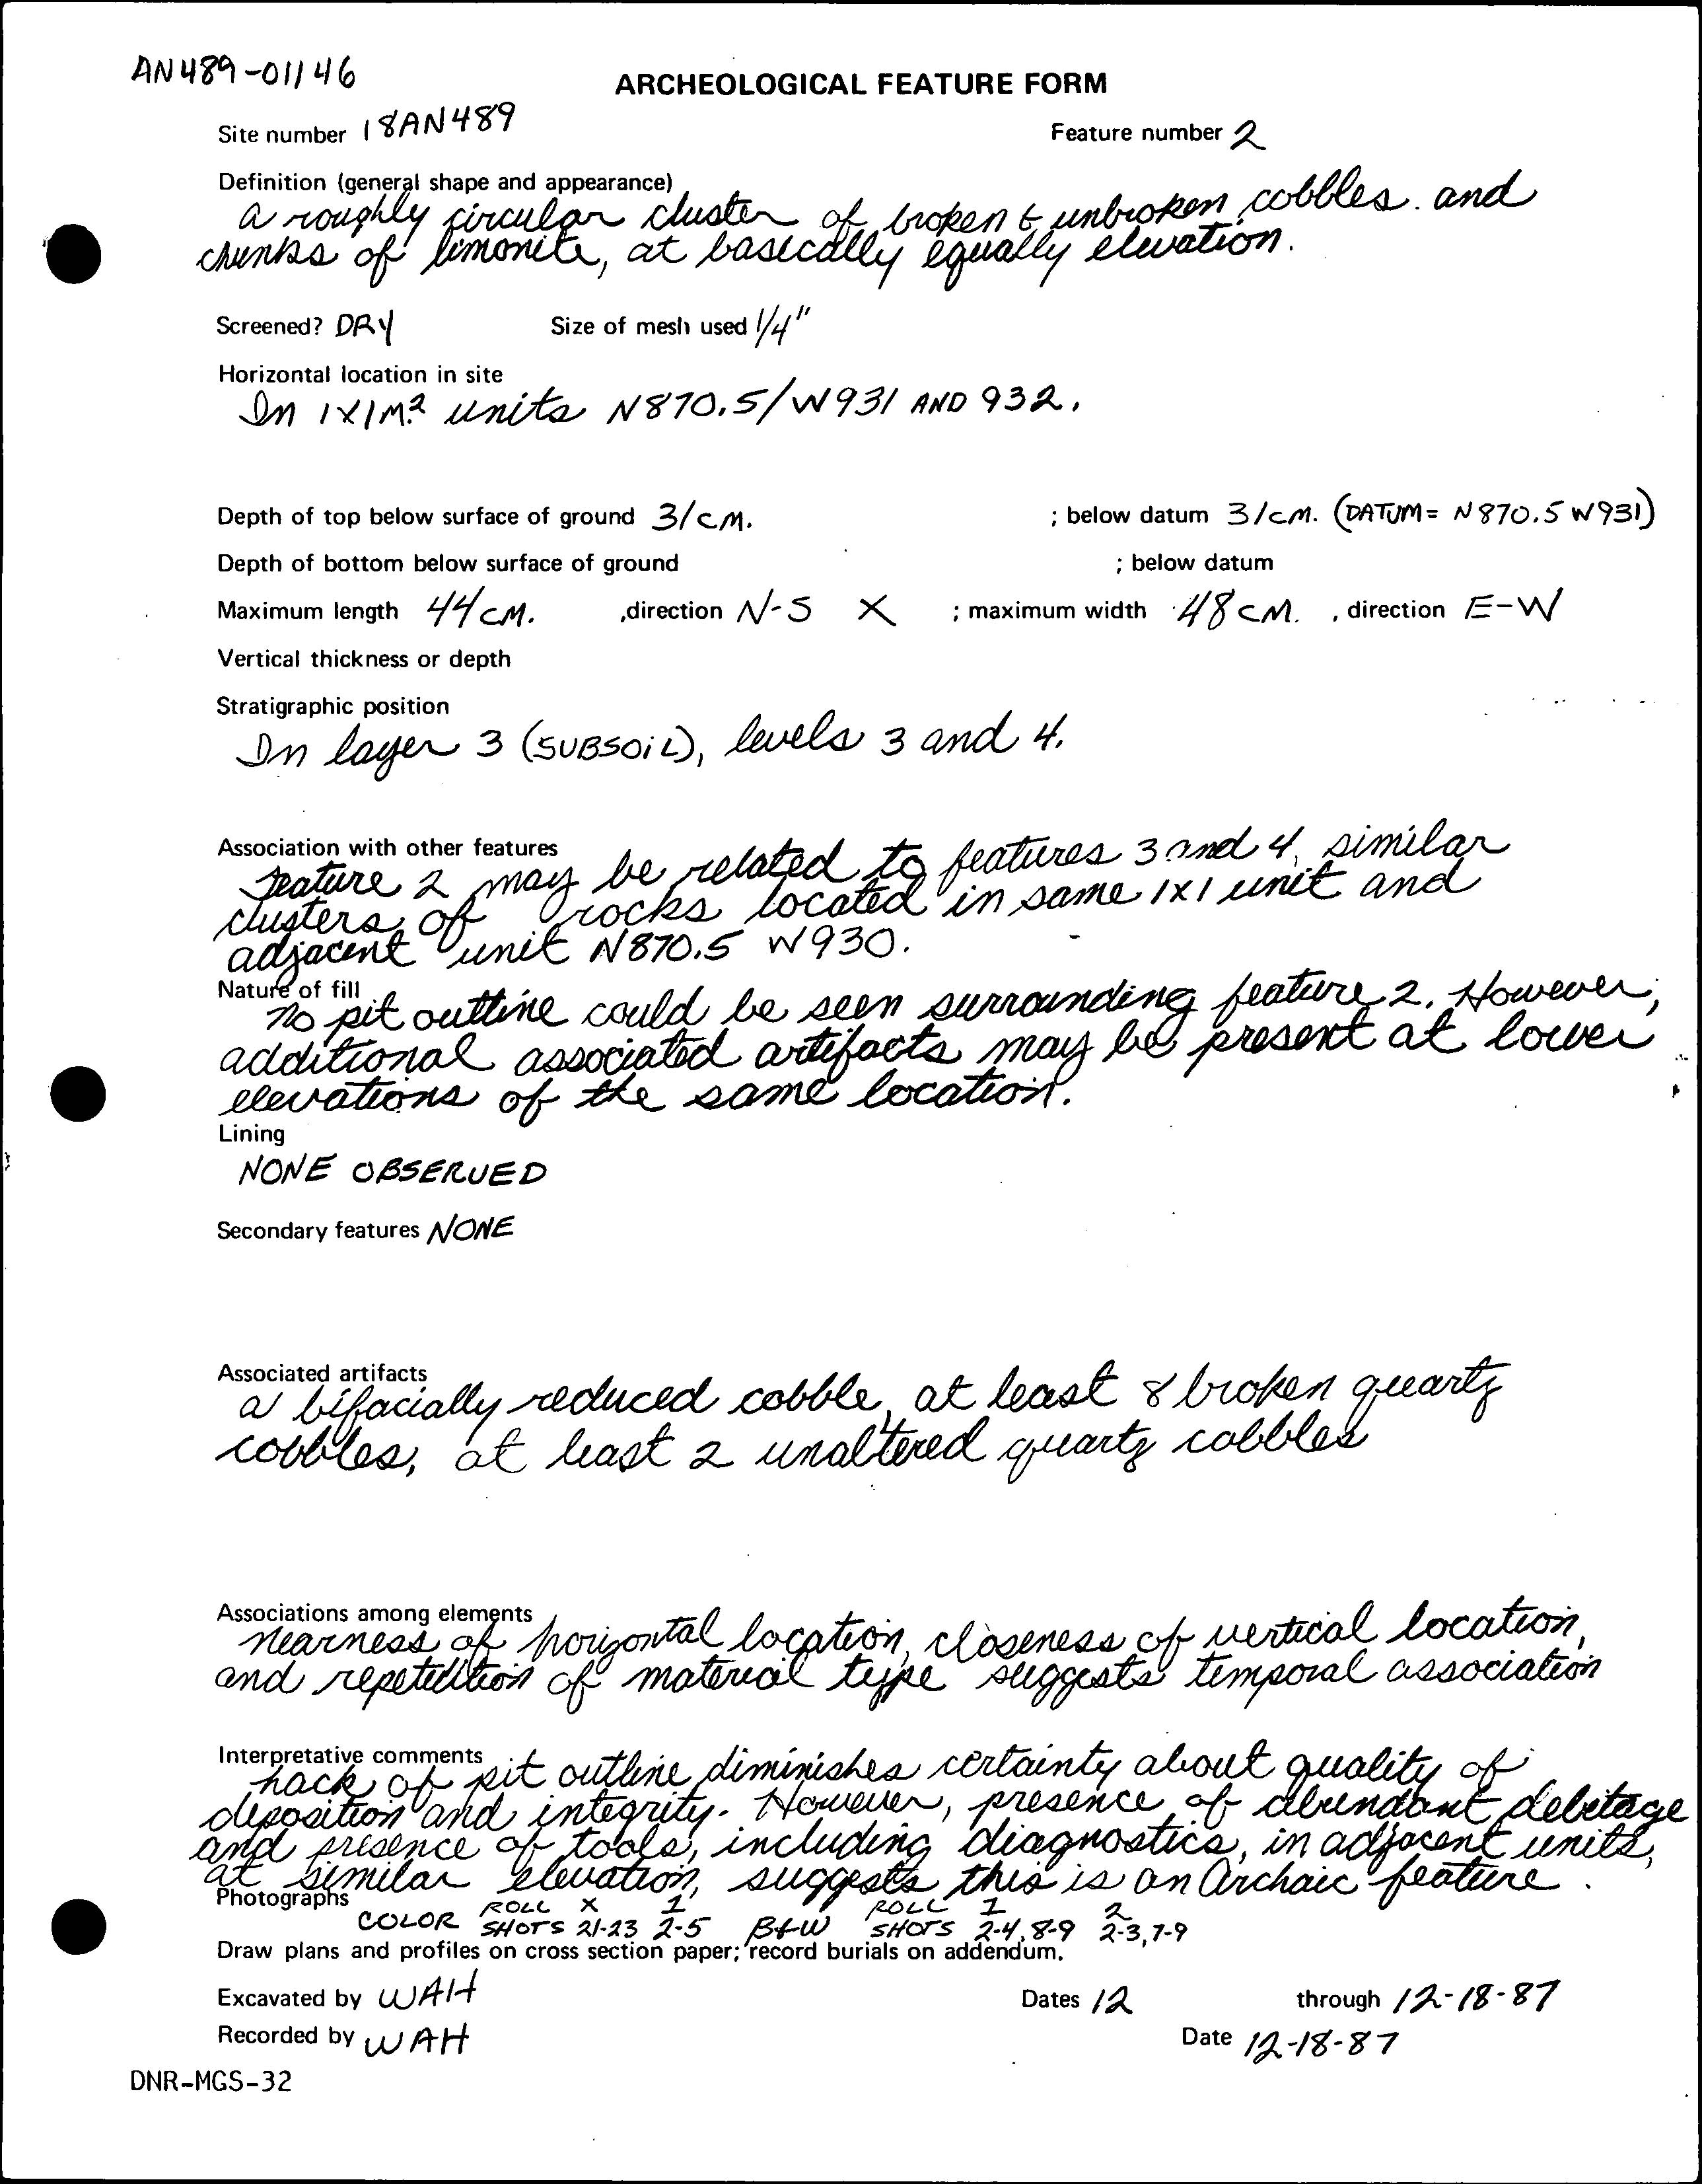 AN489-01146
ARCHEOLOGICAL FEATURE FORM
Site number 18AN489 Feature number 2
Definition (general shape and appearance)
a roughly circular cluster of broken & unbroken cobbles. and
chunks of limonite, at basically equally elevation.
Screened? DRY Size of mesh used 1/4"
Horizontal location in site
In 1X1M.² units N870.5/W931 AND 932.
Depth of top below surface of ground 31cm. ; below datum 31cm. (DATUM= N870.5 W931)
Depth of bottom below surface of ground ; below datum
Maximum length 44cm. ,direction N-S X ; maximum width 48cm. , direction E-W
Vertical thickness or depth
Stratigraphic position
In layer 3 (SUBSOIL), levels 3 and 4.
Association with other features
Feature 2 may be related to features 3 and 4, similar
clusters of rocks located in same 1x1 unit and
adjacent unit N870.5 W930.
Nature of fill
No pit outline could be seen surrounding feature 2. However,
additional associated artifacts may be present at lower
elevations of the same location.
Lining
NONE OBSERVED
Secondary features NONE
Associated artifacts
a bifacially reduced cobble, at least 8 broken quartz
cobbles, at least 2 unaltered quartz cobbles
Associations among elements
nearness of horizontal location, closeness of vertical location,
and repetition of material type suggests temporal association
Interpretative comments
Lack of pit outline diminishes certainty about quality of
deposition and integrity. However, presence of abundant debitage
and presence of tools, including diagnostics, in adjacent units,
at similar elevation, suggests this is an Archaic feature.
Photographs
ROLL X 1 ROLL 1 2
COLOR SHOTS 21-23 2-5 B&W SHOTS 2-4, 8-9 2-3, 7-9
Draw plans and profiles on cross section paper; record burials on addendum.
Excavated by WAH Dates 12 through 12-18-87
Recorded by WAH Date 12-18-87
DNR-MGS-32